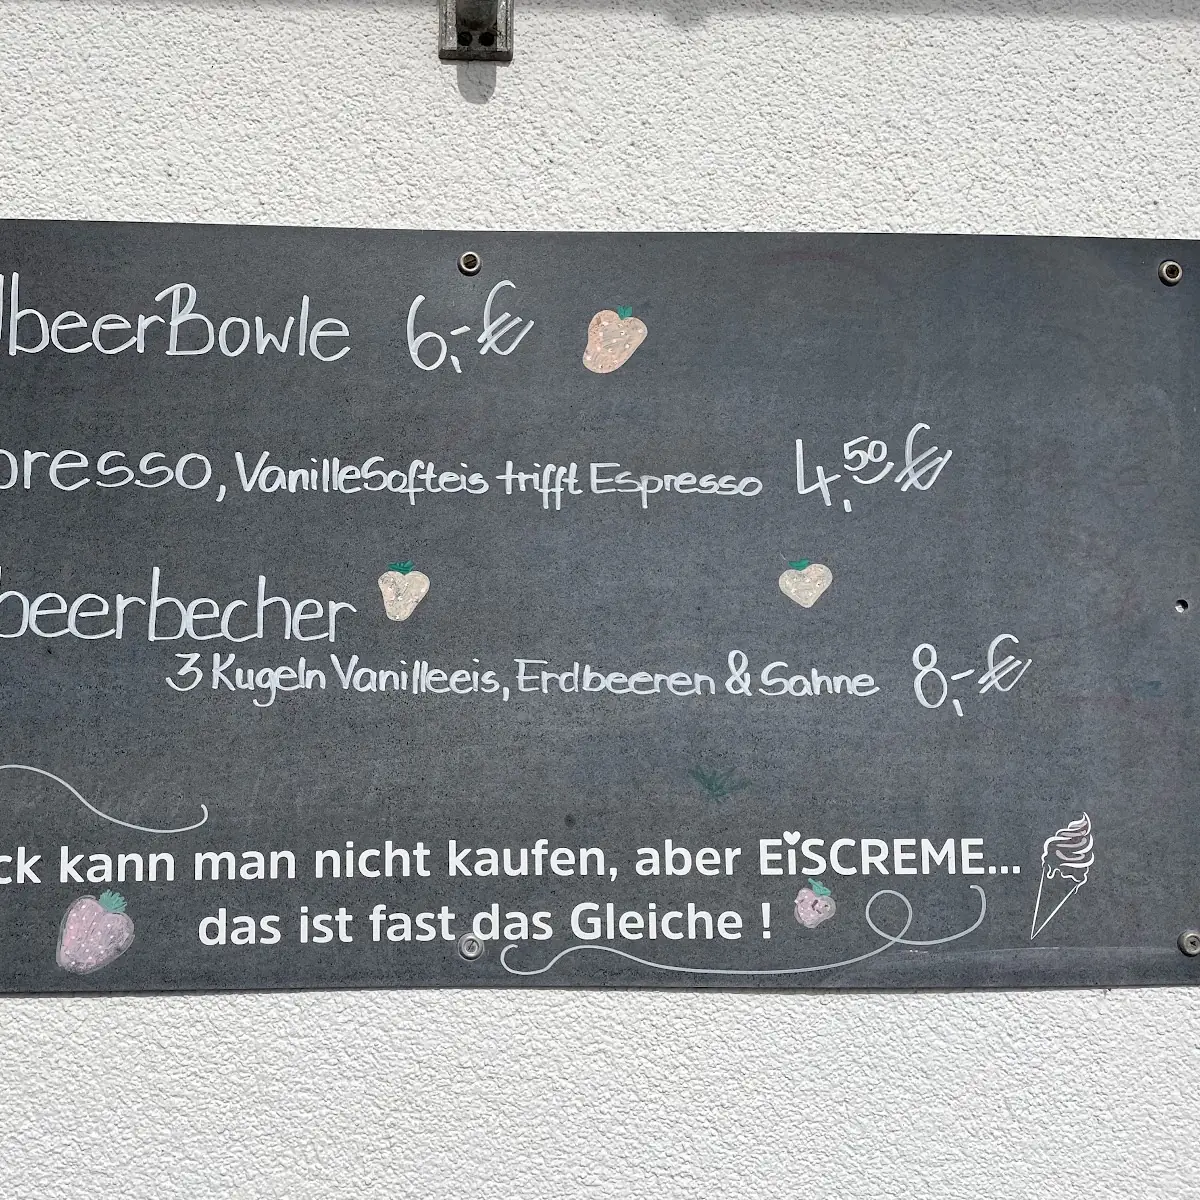 dbeerBowle 6,- €
presso, VanilleSofteis trifft Espresso 4,50 €
beerbecher
3 Kugeln Vanilleeis, Erdbeeren & Sahne 8,- €
ck kann man nicht kaufen, aber EiSCREME...
das ist fast das Gleiche !